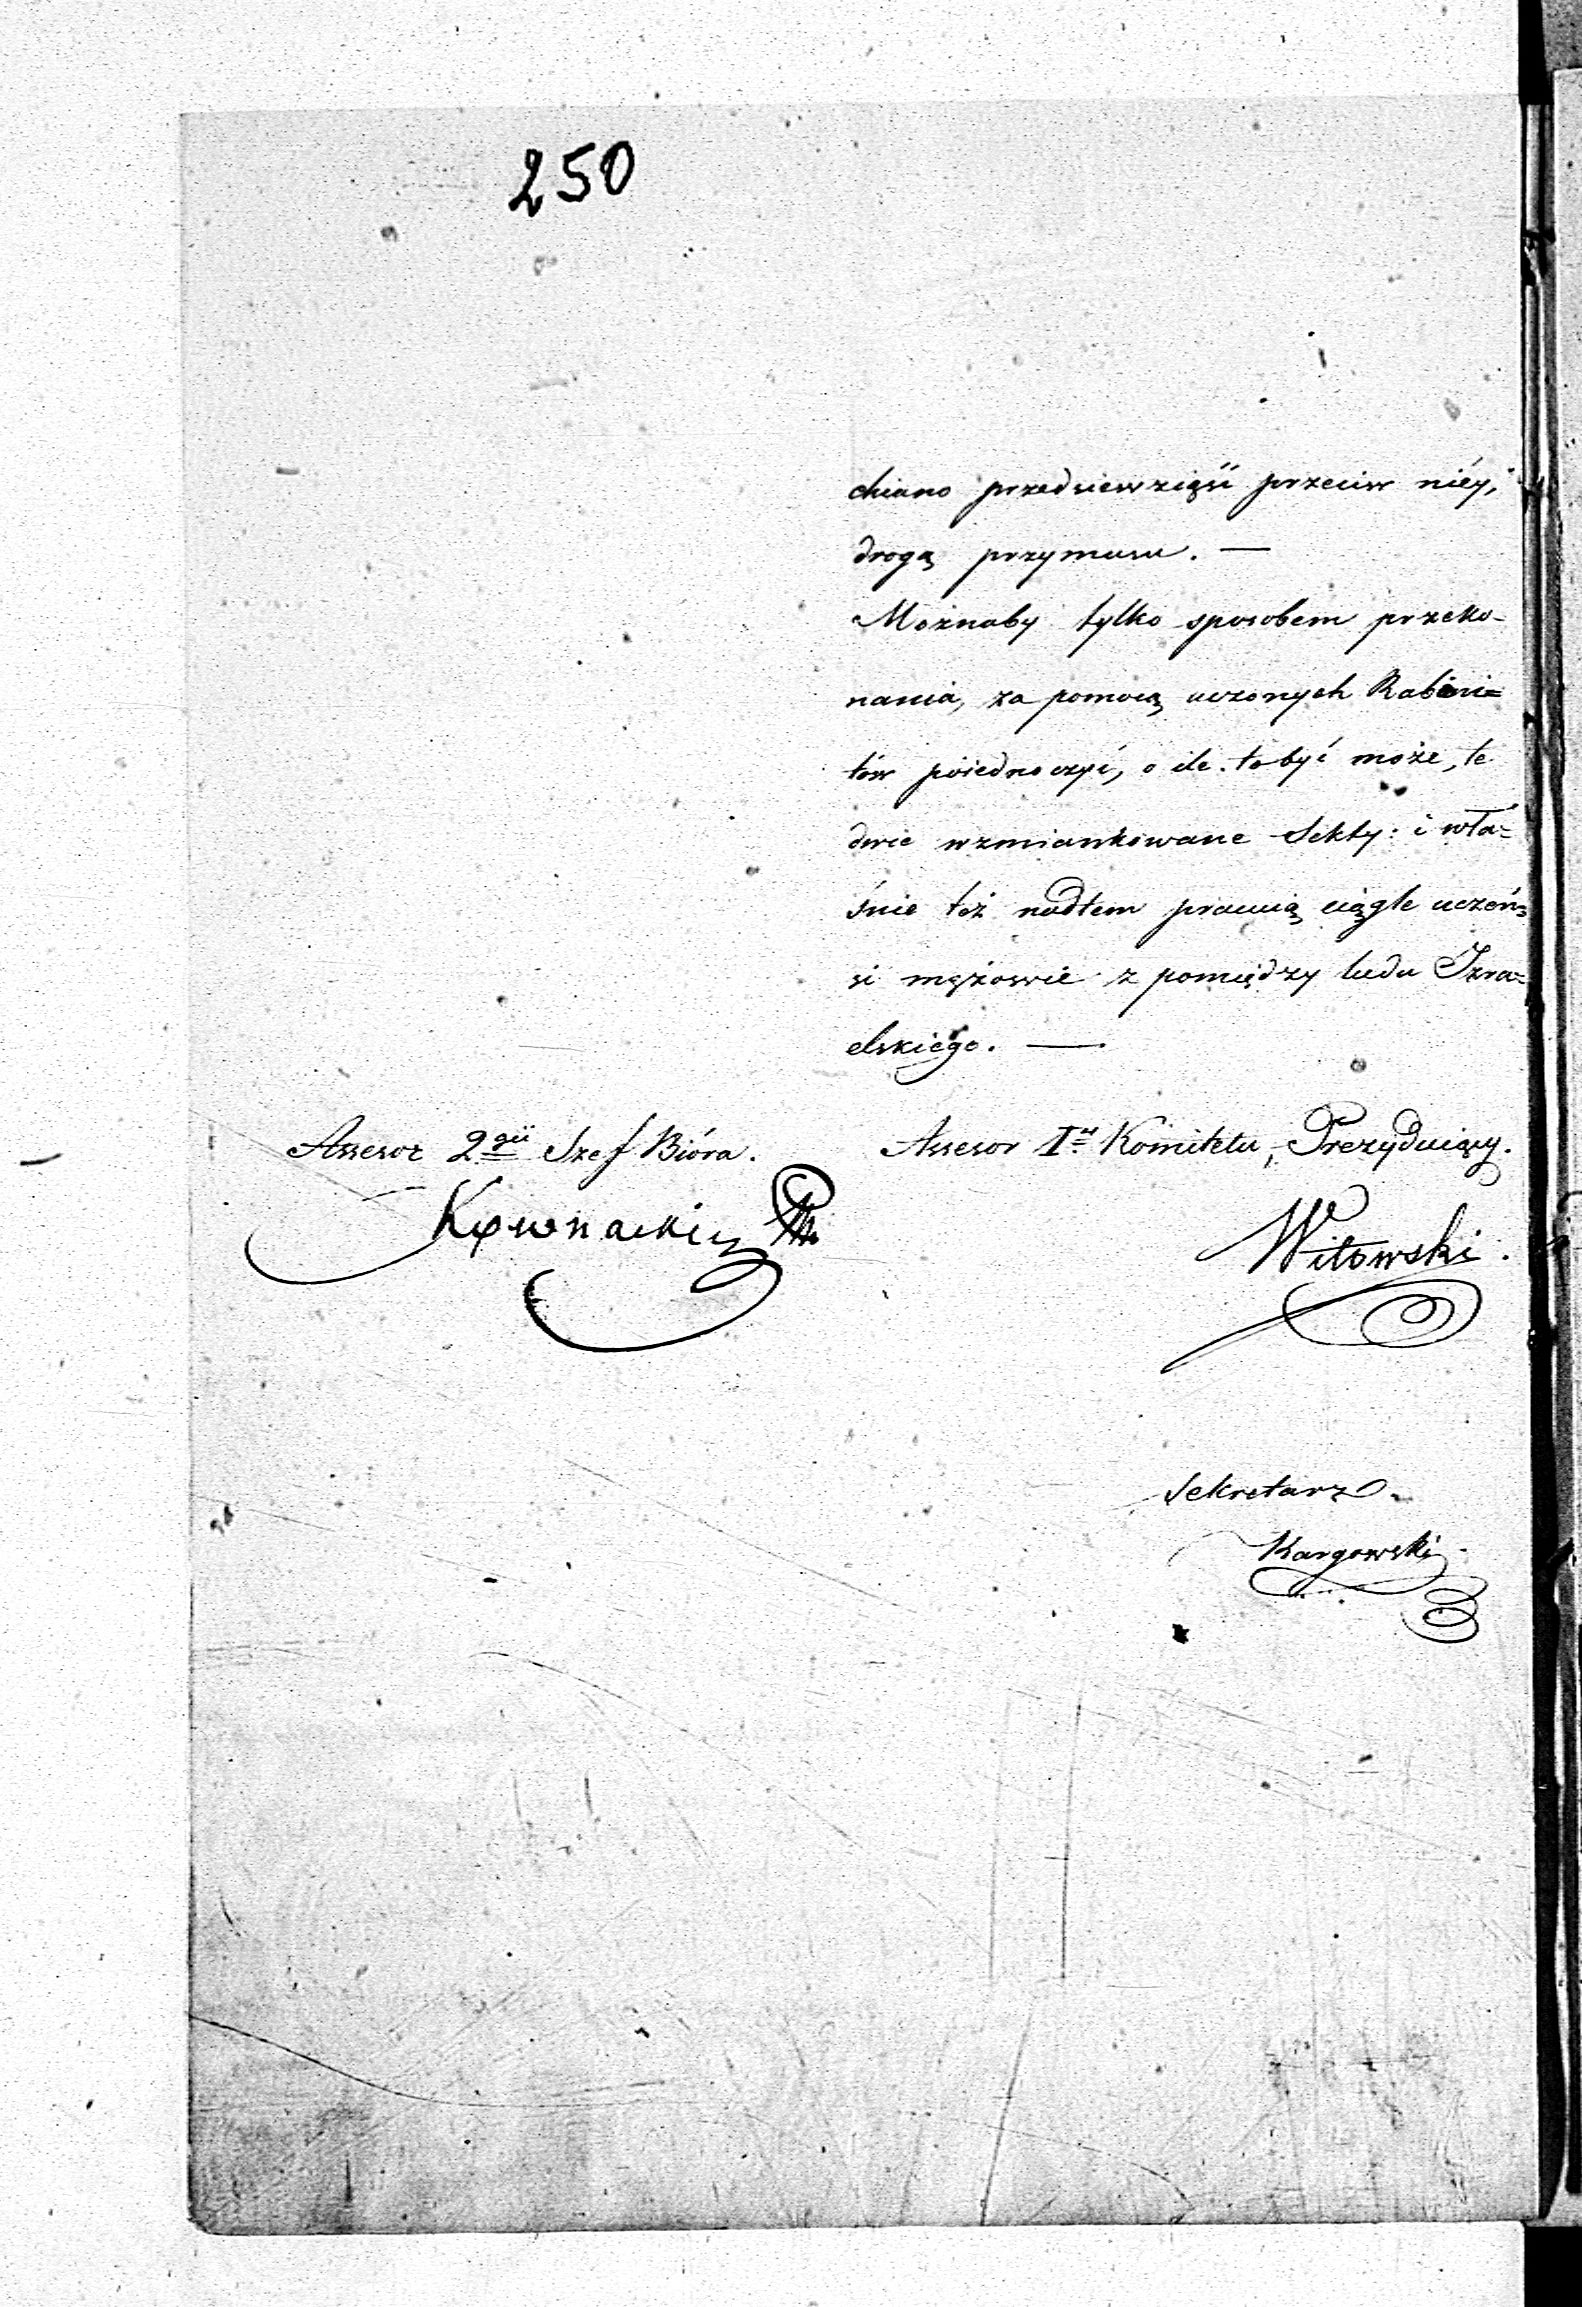 250
chiano przedsiewzięść przeciw niéy,
drogą przymusu. —
Możnaby tylko sposobem przeko-
nania, za pomocą uczonych Rabini=
tów poiednoczyć, o ile to być może, te
dwie wzmiankowane Sekty: i wła=
śnie też nadtem pracuią ciągle uczeń=
si mężowie z pomiędzy ludu Izra=
elskiégo. —
Assesor 2gii Szef Bióra.
Kownacki
Assesor Iy Komitetu, Prezyduiący.
Witowski.
Sekretarz.
Kargowski